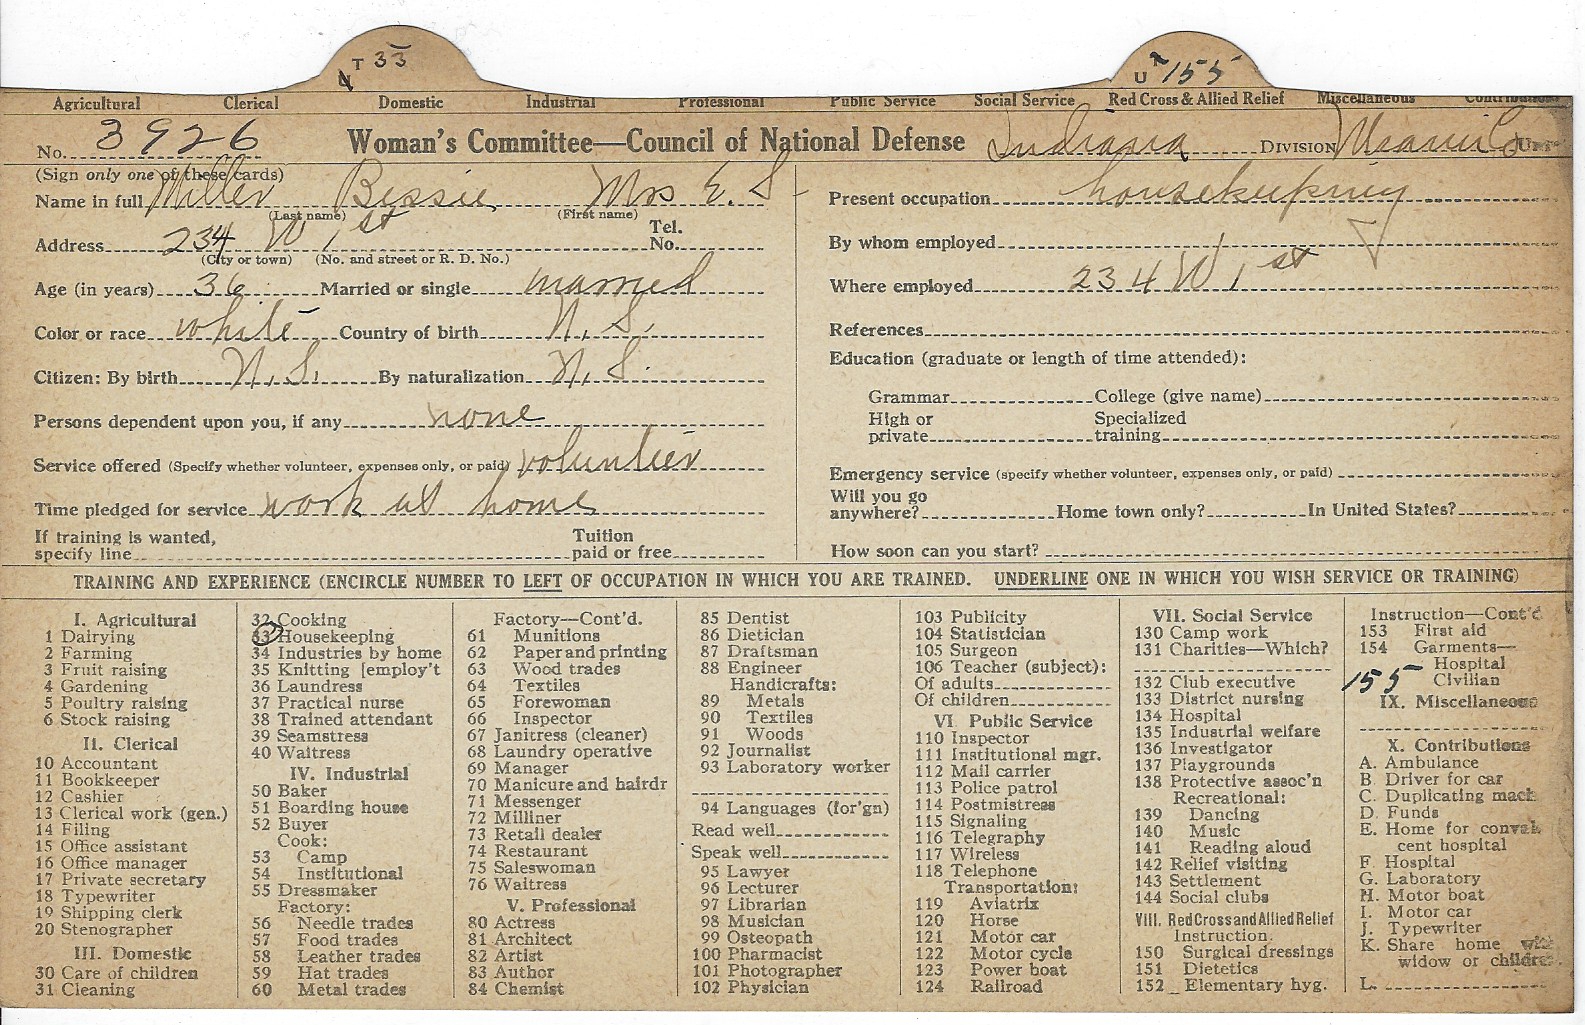 T 33
U 155
Agricultural Clerical Domestic Industrial Professional Public Service Social Service Red Cross & Allied Relief Miscellaneous Contributions
No. 3926 Woman's Committee—Council of National Defense Indiana DIVISION Miami Co UNIT
(Sign only one of these cards)
Name in full Miller Bessie Mrs E. S
(Last name) (First name)
Address 234 W 1st Tel. No.
(City or town) (No. and street or R. D. No.)
Age (in years) 36 Married or single married
Color or race white Country of birth U. S.
Citizen: By birth U. S. By naturalization U. S.
Persons dependent upon you, if any none
Service offered (Specify whether volunteer, expenses only, or paid) volunteer
Time pledged for service work at home
If training is wanted,
specify line
Tuition
paid or free
Present occupation housekeeping
By whom employed
Where employed 234 W 1st
References
Education (graduate or length of time attended):
Grammar College (give name)
High or
private
Specialized
training
Emergency service (specify whether volunteer, expenses only, or paid)
Will you go
anywhere? Home town only? In United States?
How soon can you start?
TRAINING AND EXPERIENCE (ENCIRCLE NUMBER TO LEFT OF OCCUPATION IN WHICH YOU ARE TRAINED. UNDERLINE ONE IN WHICH YOU WISH SERVICE OR TRAINING)
I. Agricultural
1 Dairying
2 Farming
3 Fruit raising
4 Gardening
5 Poultry raising
6 Stock raising
II. Clerical
10 Accountant
11 Bookkeeper
12 Cashier
13 Clerical work (gen.)
14 Filing
15 Office assistant
16 Office manager
17 Private secretary
18 Typewriter
19 Shipping clerk
20 Stenographer
III. Domestic
30 Care of children
31 Cleaning
32 Cooking
33 Housekeeping
34 Industries by home
35 Knitting [employ't
36 Laundress
37 Practical nurse
38 Trained attendant
39 Seamstress
40 Waitress
IV. Industrial
50 Baker
51 Boarding house
52 Buyer
Cook:
53 Camp
54 Institutional
55 Dressmaker
Factory:
56 Needle trades
57 Food trades
58 Leather trades
59 Hat trades
60 Metal trades
Factory—Cont'd.
61 Munitions
62 Paper and printing
63 Wood trades
64 Textiles
65 Forewoman
66 Inspector
67 Janitress (cleaner)
68 Laundry operative
69 Manager
70 Manicure and hairdr
71 Messenger
72 Milliner
73 Retail dealer
74 Restaurant
75 Saleswoman
76 Waitress
V. Professional
80 Actress
81 Architect
82 Artist
83 Author
84 Chemist
85 Dentist
86 Dietician
87 Draftsman
88 Engineer
Handicrafts:
89 Metals
90 Textiles
91 Woods
92 Journalist
93 Laboratory worker
94 Languages (for'gn)
Read well
Speak well
95 Lawyer
96 Lecturer
97 Librarian
98 Musician
99 Osteopath
100 Pharmacist
101 Photographer
102 Physician
103 Publicity
104 Statistician
105 Surgeon
106 Teacher (subject):
Of adults
Of children
VI Public Service
110 Inspector
111 Institutional mgr.
112 Mail carrier
113 Police patrol
114 Postmistress
115 Signaling
116 Telegraphy
117 Wireless
118 Telephone
Transportation:
119 Aviatrix
120 Horse
121 Motor car
122 Motor cycle
123 Power boat
124 Railroad
VII. Social Service
130 Camp work
131 Charities—Which?
132 Club executive
133 District nursing
134 Hospital
135 Industrial welfare
136 Investigator
137 Playgrounds
138 Protective assoc'n
Recreational:
139 Dancing
140 Music
141 Reading aloud
142 Relief visiting
143 Settlement
144 Social clubs
VIII. Red Cross and Allied Relief
Instruction:
150 Surgical dressings
151 Dietetics
152 Elementary hyg.
Instruction—Cont'd
153 First aid
154 Garments—
Hospital
155 Civilian
IX. Miscellaneous
X. Contributions
A. Ambulance
B. Driver for car
C. Duplicating mach
D. Funds
E. Home for conval
cent hospital
F. Hospital
G. Laboratory
H. Motor boat
I. Motor car
J. Typewriter
K. Share home with
widow or children
L.